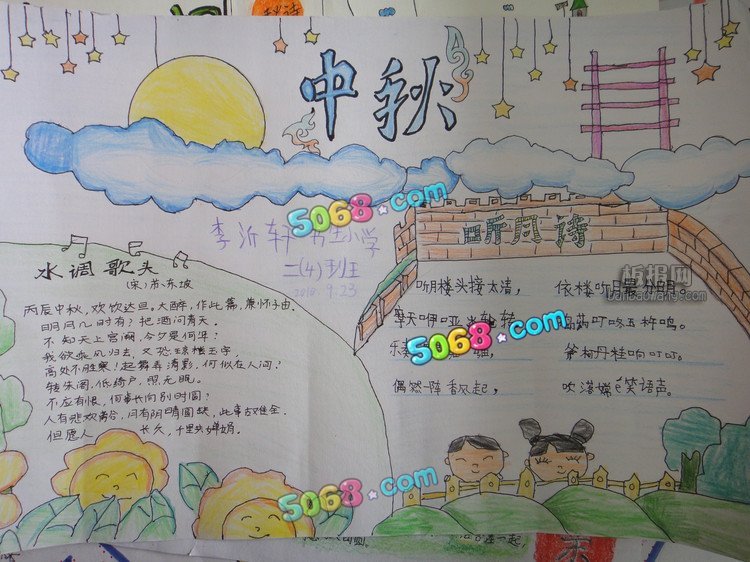 中秋
5068.com
李沂轩
小学
二(4)班
2010 9.23
听月诗
水调歌头
(宋)苏东坡
丙辰中秋,欢饮达旦。大醉,作此篇,兼怀子由。
明月几时有?把酒问青天。
不知天上宫阙,今夕是何年?
我欲乘风归去,又恐琼楼玉宇,
高处不胜寒!起舞弄清影,何似在人间?
转朱阁,低绮户,照无眠。
不应有恨,何事长向别时圆?
人有悲欢离合,月有阴晴圆缺,此事古难全。
但愿人 长久,千里共婵娟。
听月楼头接太清,
依楼听月最分明。
摩天咿哑冰轮转,
叮咚玉杵鸣。
5068.com
斧柯丹桂响叮叮。
偶然一阵香风起,
吹落嫦 笑语声。
5068.com